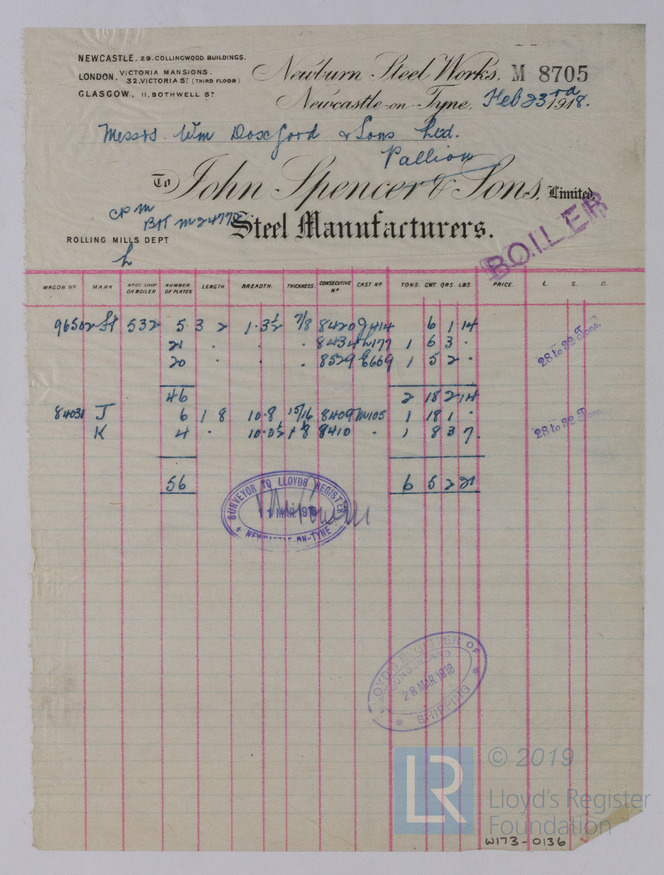 NEWCASTLE. 29. COLLINGWOOD BUILDINGS.
LONDON. VICTORIA MANSIONS.
32, VICTORIA ST (THIRD FLOOR)
GLASGOW. 11, BOTHWELL ST
Newburn Steel Works. M 8705
Newcastle-on-Tyne, Feb 23rd 1918.
Messrs. Wm Doxford & Sons Ltd.
Pallion
To John Spencer & Sons, Limited,
CPM
BH M24772
Steel Manufacturers.
BOILER
ROLLING MILLS DEPT
L
WAGON No MARK No OF SHIP OR BOILER NUMBER OF PLATES LENGTH BREADTH. THICKNESS CONSECUTIVE No CAST No TONS. CWT. QRS. LBS. PRICE. L. S. D.
96502 St 532 5 3 2 1.3½ 7/8 8420 J414 6 1 14
21 . . . 8434 L177 1 6 3 . 28 to 32 Tons.
20 . . . 8529 E669 1 5 2 .
46 2 18 2 14
84031 J 6 1 8 10.8 15/16 8409 M105 1 18 1 .
K 4 . 10.0½ 1⅛ 8410 . 1 8 3 7. 28 to 32 Tons.
56 6 5 2 21
SURVEYOR TO LLOYDS REGISTER
1 MAR 1918
NEWCASTLE-ON-TYNE
LLOYDS REGISTER OF
28 MAR 1918
SHIPPING
LR
© 2019
Lloyd's Register
Foundation
W173-0136